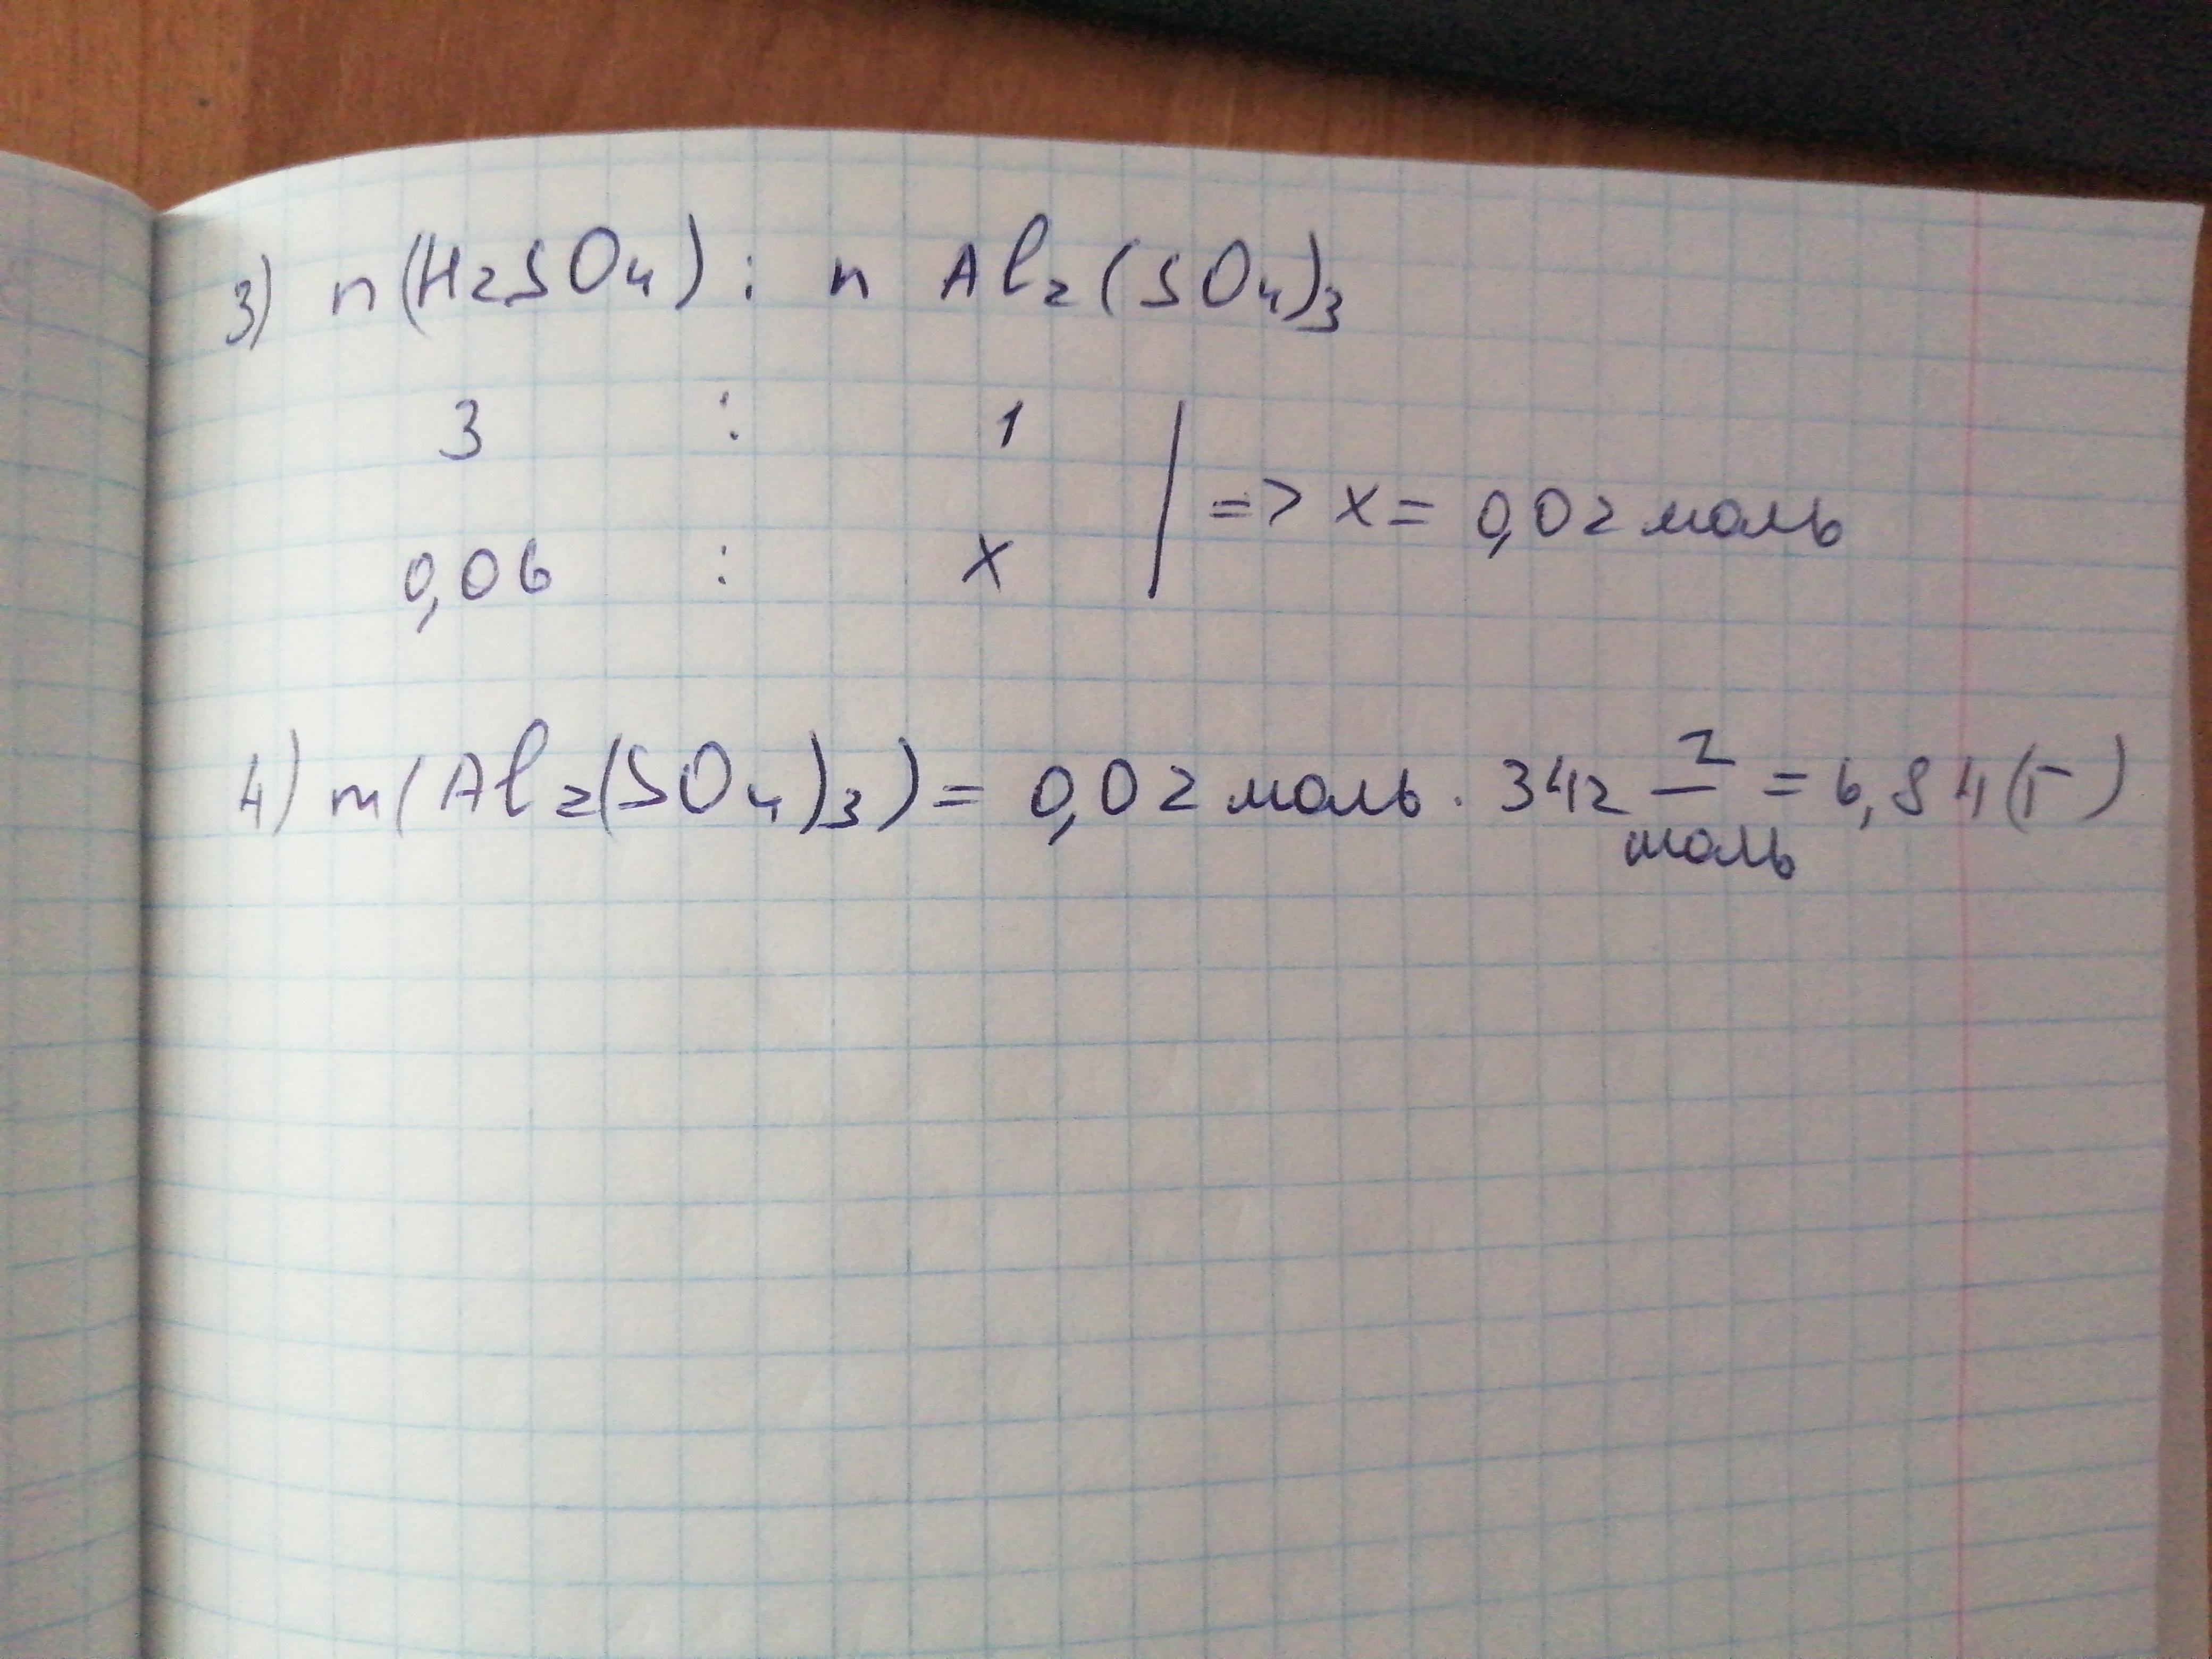 3) n(H2SO4) : n Al2(SO4)3
3 : 1
=> x = 0,02 моль
0,06 : x
4) m(Al2(SO4)3) = 0,02 моль · 342 г/моль = 6,84(г)